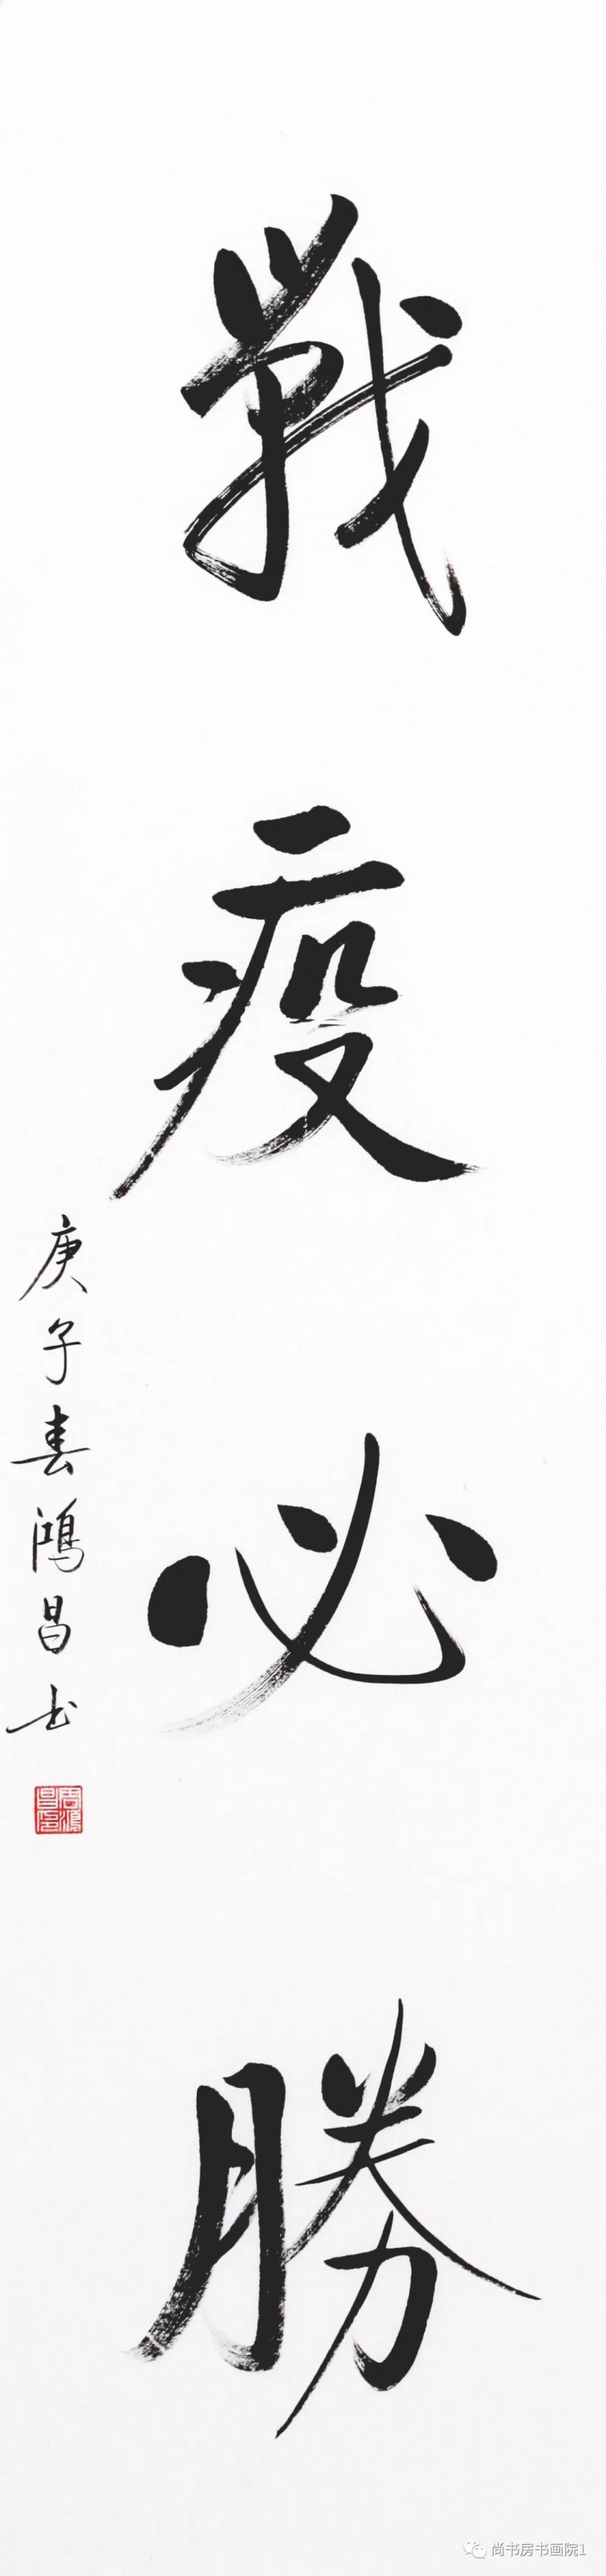 戰疫必勝
庚子春鴻昌书
周鴻昌印
尚书房书画院1